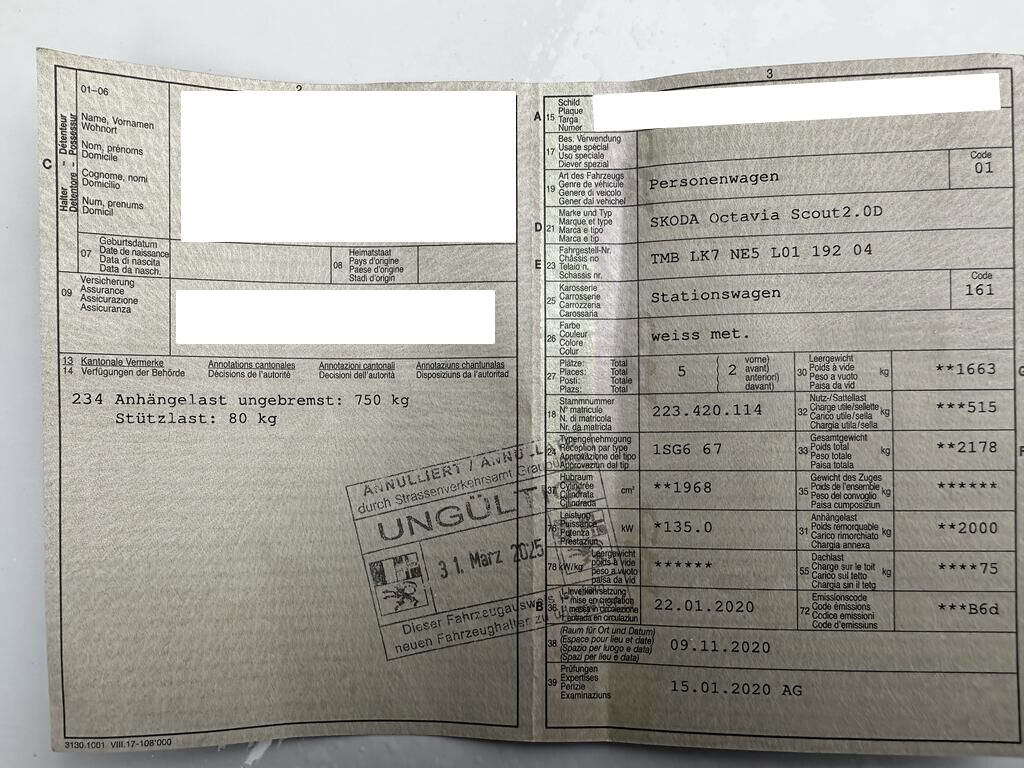 2
01–06
Halter - Détenteur
Detentore - Possessur
Name, Vornamen
Wohnort
Nom, prénoms
Domicile
C
Cognome, nomi
Domicilio
Num, prenums
Domicil
07
Geburtsdatum
Date de naissance
Data di nascita
Data da nasch.
08
Heimatstaat
Pays d'origine
Paese d'origine
Stadi d'origin
09
Versicherung
Assurance
Assicurazione
Assicuranza
13 Kantonale Vermerke Annotations cantonales Annotazioni cantonali Annotaziuns chantunalas
14 Verfügungen der Behörde Décisions de l'autorité Decisioni dell'autorità Disposiziuns da l'autoritad
234 Anhängelast ungebremst: 750 kg
Stützlast: 80 kg
ANNULLIERT /
durch Strassenverkehrsamt
UNGÜLT
31. März 2025
Dieser Fahrzeugauswe
neuen Fahrzeughalter zu
3130.1001 VIII.17-108'000
3
A
15
Schild
Plaque
Targa
Numer
17
Bes. Verwendung
Usage spécial
Uso speciale
Diever spezial
19
Art des Fahrzeugs
Genre de véhicule
Genere di veicolo
Gener dal vehichel
Personenwagen
Code
01
D
21
Marke und Typ
Marque et type
Marca e tipo
Marca e tip
SKODA Octavia Scout2.0D
E
23
Fahrgestell-Nr.
Châssis no
Telaio n.
Schassis nr.
TMB LK7 NE5 L01 192 04
25
Karosserie
Carrosserie
Carrozzeria
Carossaria
Stationswagen
Code
161
26
Farbe
Couleur
Colore
Colur
weiss met.
27
Plätze: Total
Places: Total
Posti: Totale
Plazs: Total
5
2
vorne)
avant)
anteriori)
davant)
30
Leergewicht
Poids à vide
Peso a vuoto
Paisa da vid
kg
**1663
G
18
Stammnummer
N° matricule
N. di matricola
Nr. da matricla
223.420.114
32
Nutz-/Sattellast
Charge utile/sellette
Carico utile/sella
Chargia utila/sella
kg
***515
24
Typengenehmigung
Réception par type
Approvazione del tipo
Approvaziun dal tip
1SG6 67
33
Gesamtgewicht
Poids total
Peso totale
Paisa totala
kg
**2178
F
37
Hubraum
Cylindrée
Cilindrata
Cilindrada
cm³
**1968
35
Gewicht des Zuges
Poids de l'ensemble
Peso del convoglio
Paisa cumposiziun
kg
******
76
Leistung
Puissance
Potenza
Prestaziun
kW
*135.0
31
Anhängelast
Poids remorquable
Carico rimorchiato
Chargia annexa
kg
**2000
78 kW/kg
Leergewicht
poids à vide
peso a vuoto
paisa da vid
******
55
Dachlast
Charge sur le toit
Carico sul tetto
Chargia sin il tetg
kg
****75
B
36
1. Inverkehrsetzung
1re mise en circulation
1. messa in circolazione
1. entrada en circulaziun
22.01.2020
72
Emissionscode
Code émissions
Codice emissioni
Code d'emissiuns
***B6d
38
(Raum für Ort und Datum)
(Espace pour lieu et date)
(Spazio per luogo e data)
(Spazi per lieu e data)
09.11.2020
39
Prüfungen
Expertises
Perizie
Examinaziuns
15.01.2020 AG